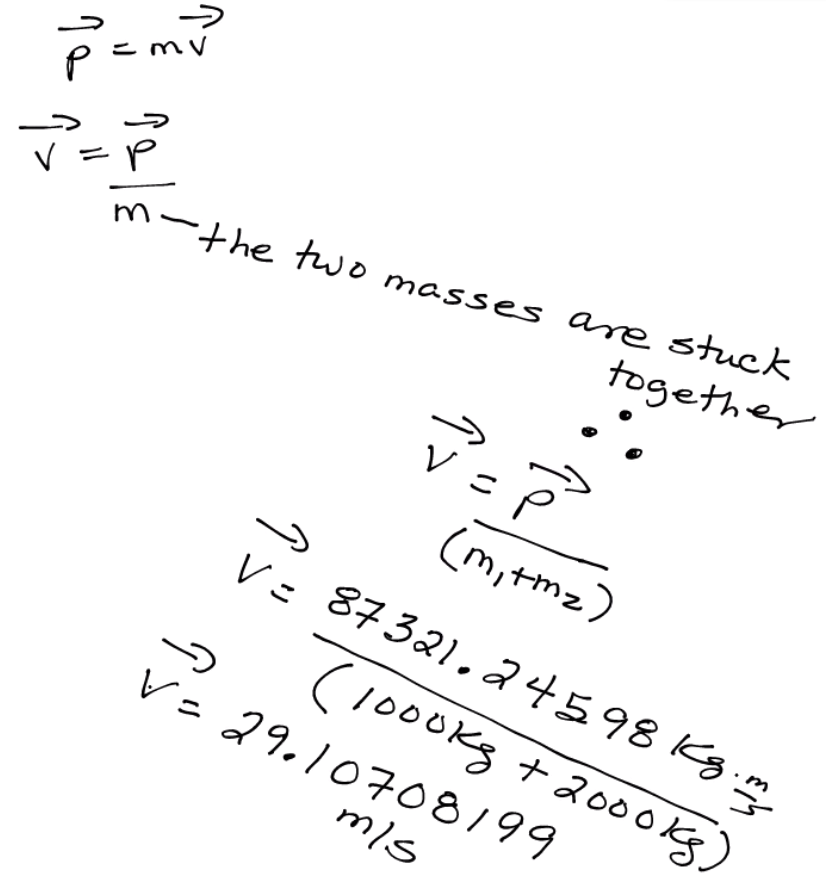 p⃗ = mv⃗
v⃗ = p⃗
m — the two masses are stuck
together
∴
v⃗ = p⃗
(m₁+m₂)
v⃗ = 87321.24598 kg·m/s
(1000kg + 2000kg)
v⃗ = 29.10708199
m/s